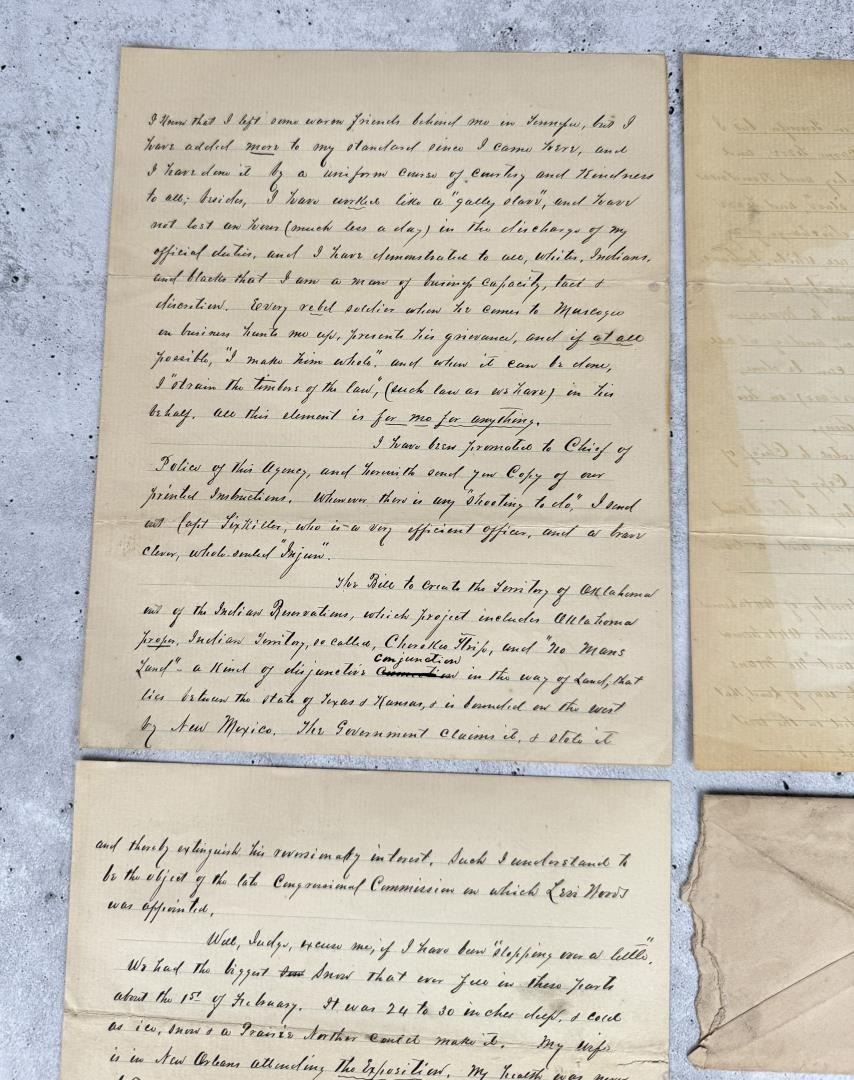 I know that I left some warm friends behind me in Tennessee, but I
have added more to my standard since I came here, and
I have done it by a uniform course of courtesy and kindness
to all; besides, I have worked like a "gally slave", and have
not lost an hour (much less a day) in the discharge of my
official duties, and I have demonstrated to all, whites, Indians,
and blacks that I am a man of business capacity, tact &
discretion. Every rebel soldier when he comes to Muscogee
on business hunts me up, presents his grievance, and if at all
possible, "I make him whole", and when it can be done,
I "strain the timbers of the law", (such law as we have) in his
behalf. all this element is for me for anything.
I have been promoted to Chief of
Police of this Agency, and herewith send you Copy of our
printed Instructions. Whenever there is any "shooting to do", I send
out Capt SixKiller, who is a very efficient officer, and a brave
clever, whole-souled "Injun".
The Bill to create the Territory of Oklahoma
out of the Indian Reservations, which project includes Oklahoma
proper, Indian Territory, so called, Cherokee Strip, and "No Mans
Land" - a kind of disjunctive conjunction in the way of Land, that
lies between the state of Texas & Kansas, & is bounded on the west
by New Mexico. The Government claims it, & stole it
and thereby extinguish his reversionary interest. Such I understand to
be the object of the late Congressional Commission on which
was appointed.
Well, Judge, excuse me, if I have been "slopping over a little".
We had the biggest snow that ever fell in these parts
about the 1st of February. It was 24 to 30 inches deep, & cold
as ice, snow & a Prairie Norther could make it. My wife
is in New Orleans attending the Exposition. My health was never